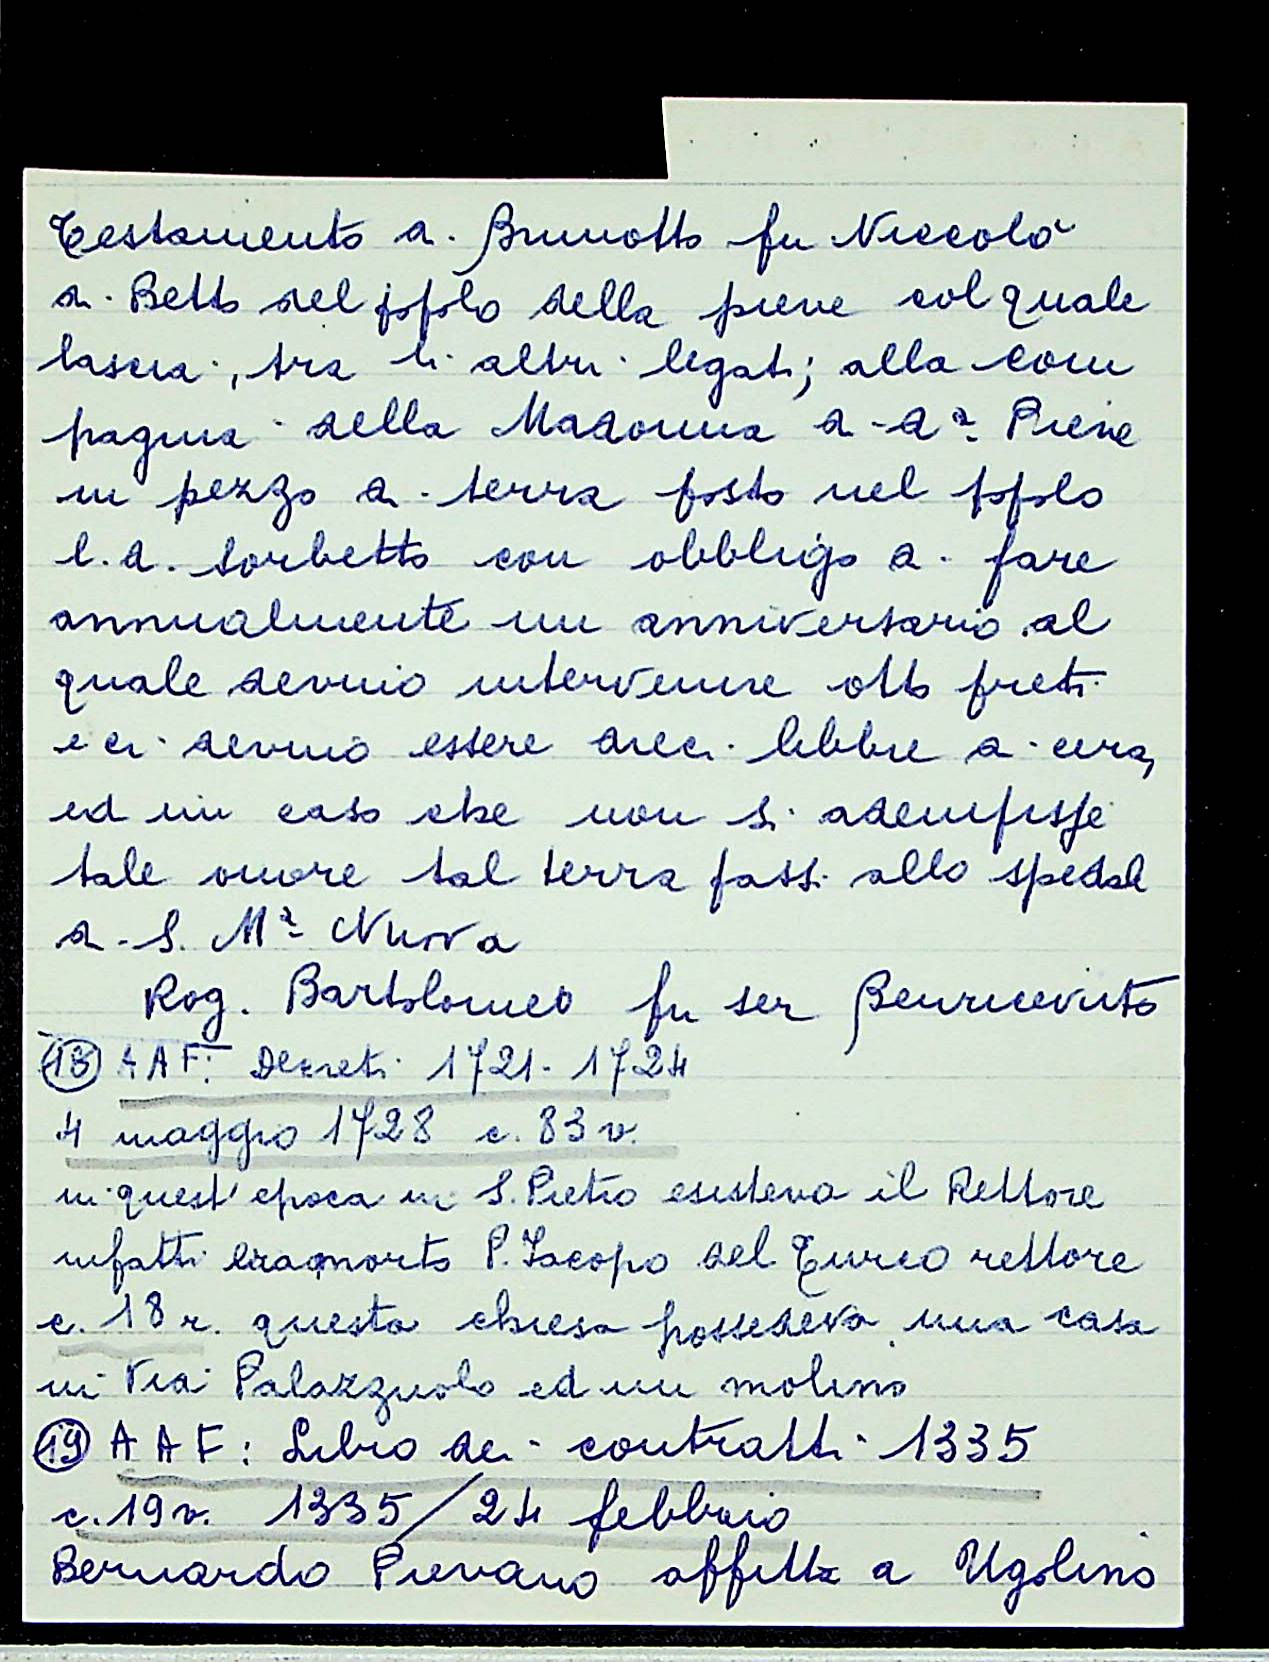 Testamento di Brunotto fu Niccolò
di Betto del popolo della pieve col quale
lascia, tra li altri legati; alla com
pagnia della Madonna di dª Pieve
un pezzo di terra posto nel popolo
l.d. Sorbetto con obbligo di fare
annualmente un anniversario al
quale devino intervenire otto preti
e ci devino essere dieci libbre di cera,
ed in caso che non si adempisse
tale onore tal terra passi allo spedal
di S. Mª Nuova
Rog. Bartolomeo fu ser Benricevuto
(18) AAF: Decreti 1721-1724
4 maggio 1728 c. 83 v.
in quest'epoca in S. Pietro esisteva il Rettore
infatti era morto P. Jacopo del Turco rettore
c. 18 r. questa chiesa possedeva una casa
in Via Palazzuolo ed un molino
(19) AAF: Libro dei contratti 1335
c. 19 v. 1335/24 febbraio
Bernardo Pievano affitta a Ugolino